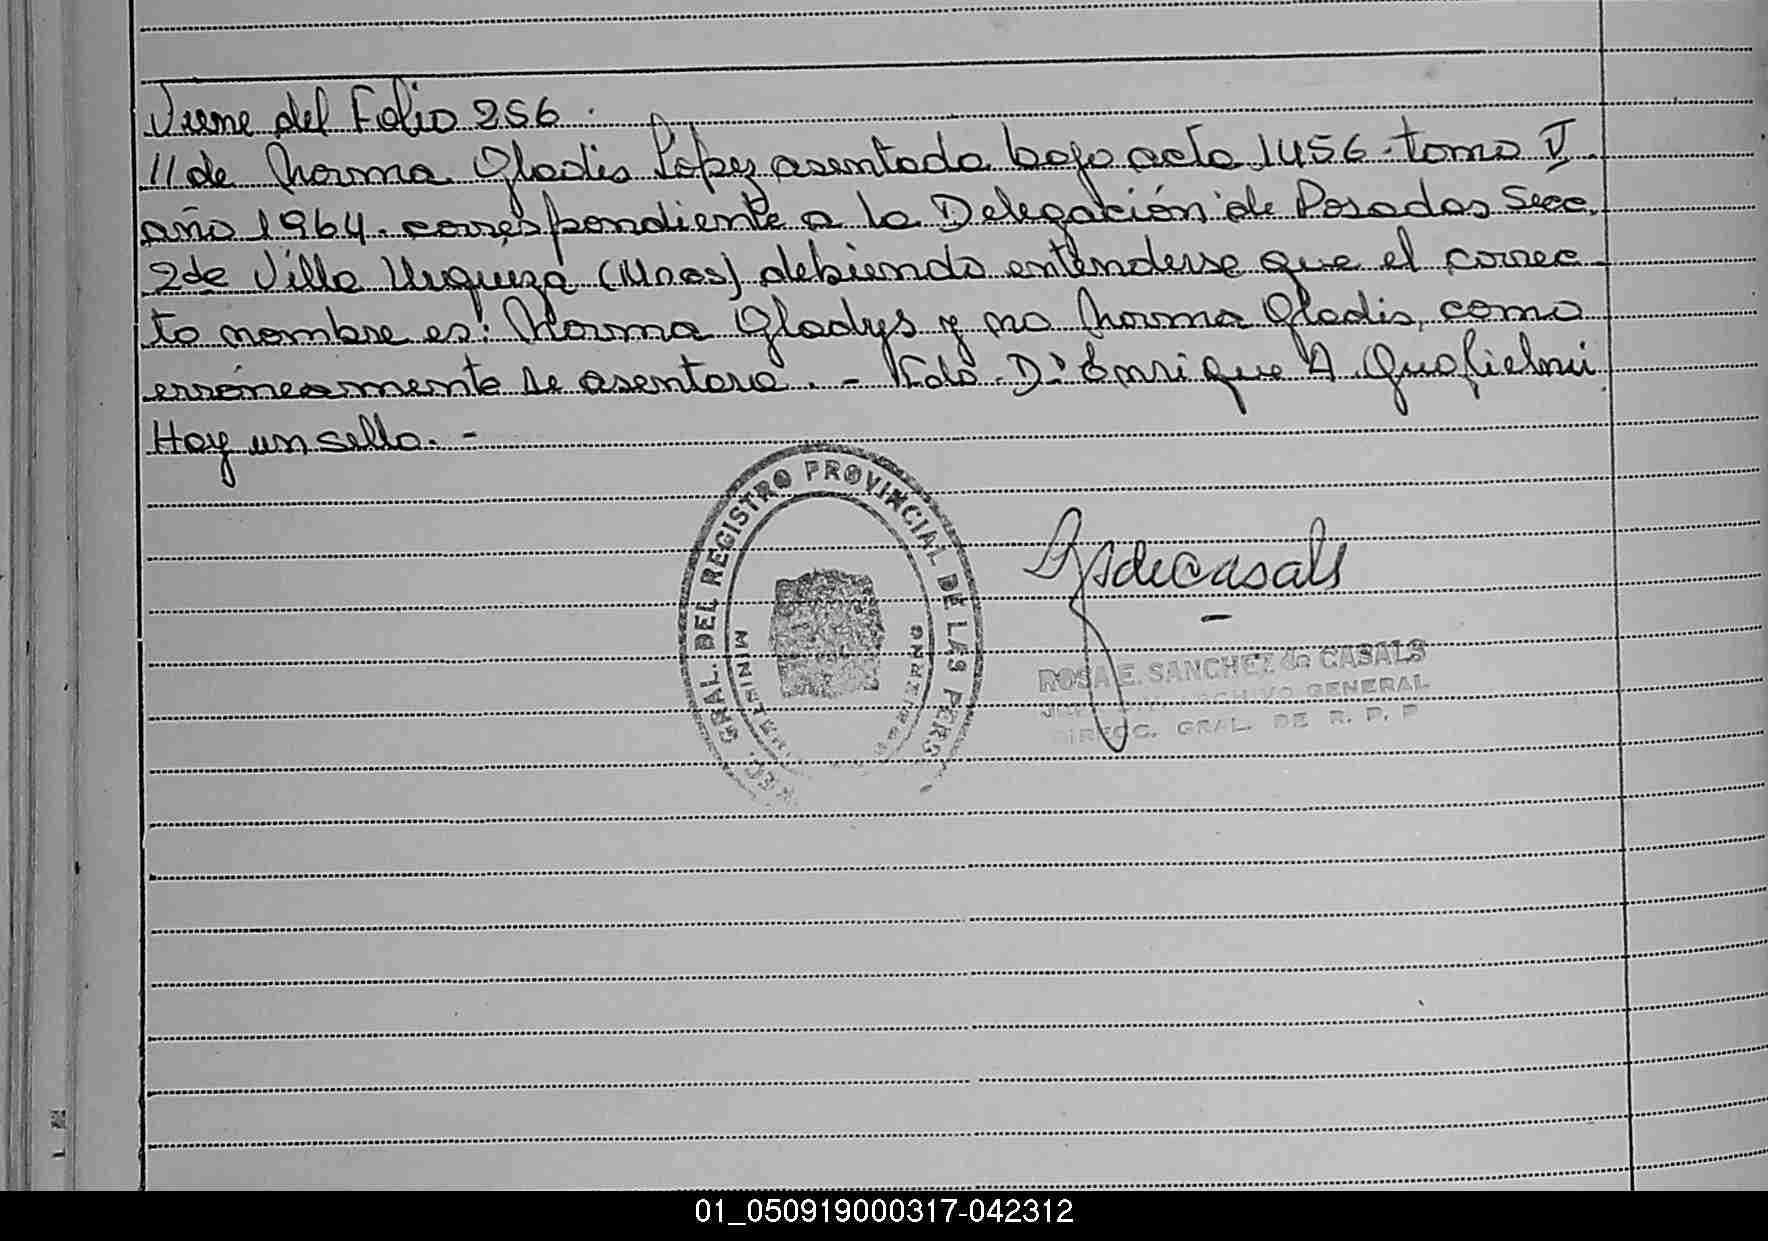 Viene del Folio 256.
11 de Norma Gladis López asentada bajo acta 1456. tomo V
año 1964. correspondiente a la Delegación de Posadas Secc.
2da Villa Urquiza (Mnes) debiendo entenderse que el correc
to nombre es: Norma Gladys y no Norma Gladis, como
erróneamente se asentara. - Fdo. Dr Enrique A. Guglielmi
Hay un sello. -
GRAL. DEL REGISTRO PROVINCIAL DE LAS PERS
ROSA E. SANCHEZ de CASALS
ARCHIVO GENERAL
DIREC. GRAL. DE R. P. P
01_050919000317-042312